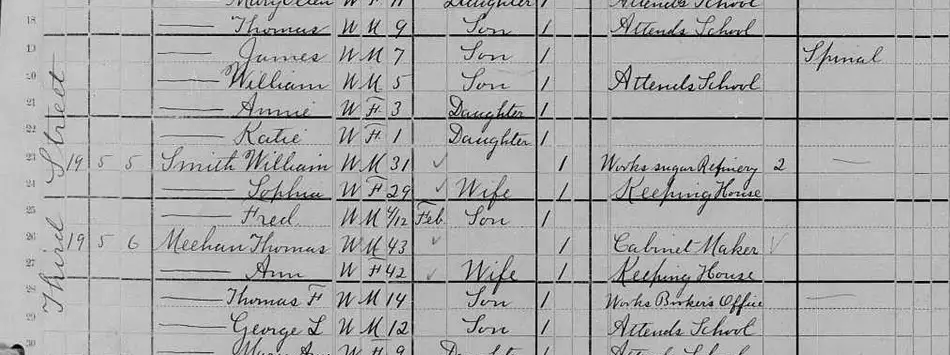 Mary Ellen W F 11 Daughter 1 Attends School
18 — Thomas W M 9 Son 1 Attends School
— James W M 7 Son 1 Spinal
20 — William W M 5 Son 1 Attends School
21 — Annie W F 3 Daughter 1
22 — Katie W F 1 Daughter 1
23 19 5 5 Smith William W M 31 ✓ 1 Works sugar Refinery 2 —
24 — Sophia W F 29 ✓ Wife 1 Keeping House
25 — Fred W M 4/12 Feb Son 1
26 19 5 6 Meehan Thomas W M 43 ✓ 1 Cabinet Maker ✓
27 — Ann W F 42 ✓ Wife 1 Keeping House
— Thomas F W M 14 Son 1 Works Office —
29 — George L W M 12 Son 1 Attends School
30 — W F 9 1 Attends School
Third Street